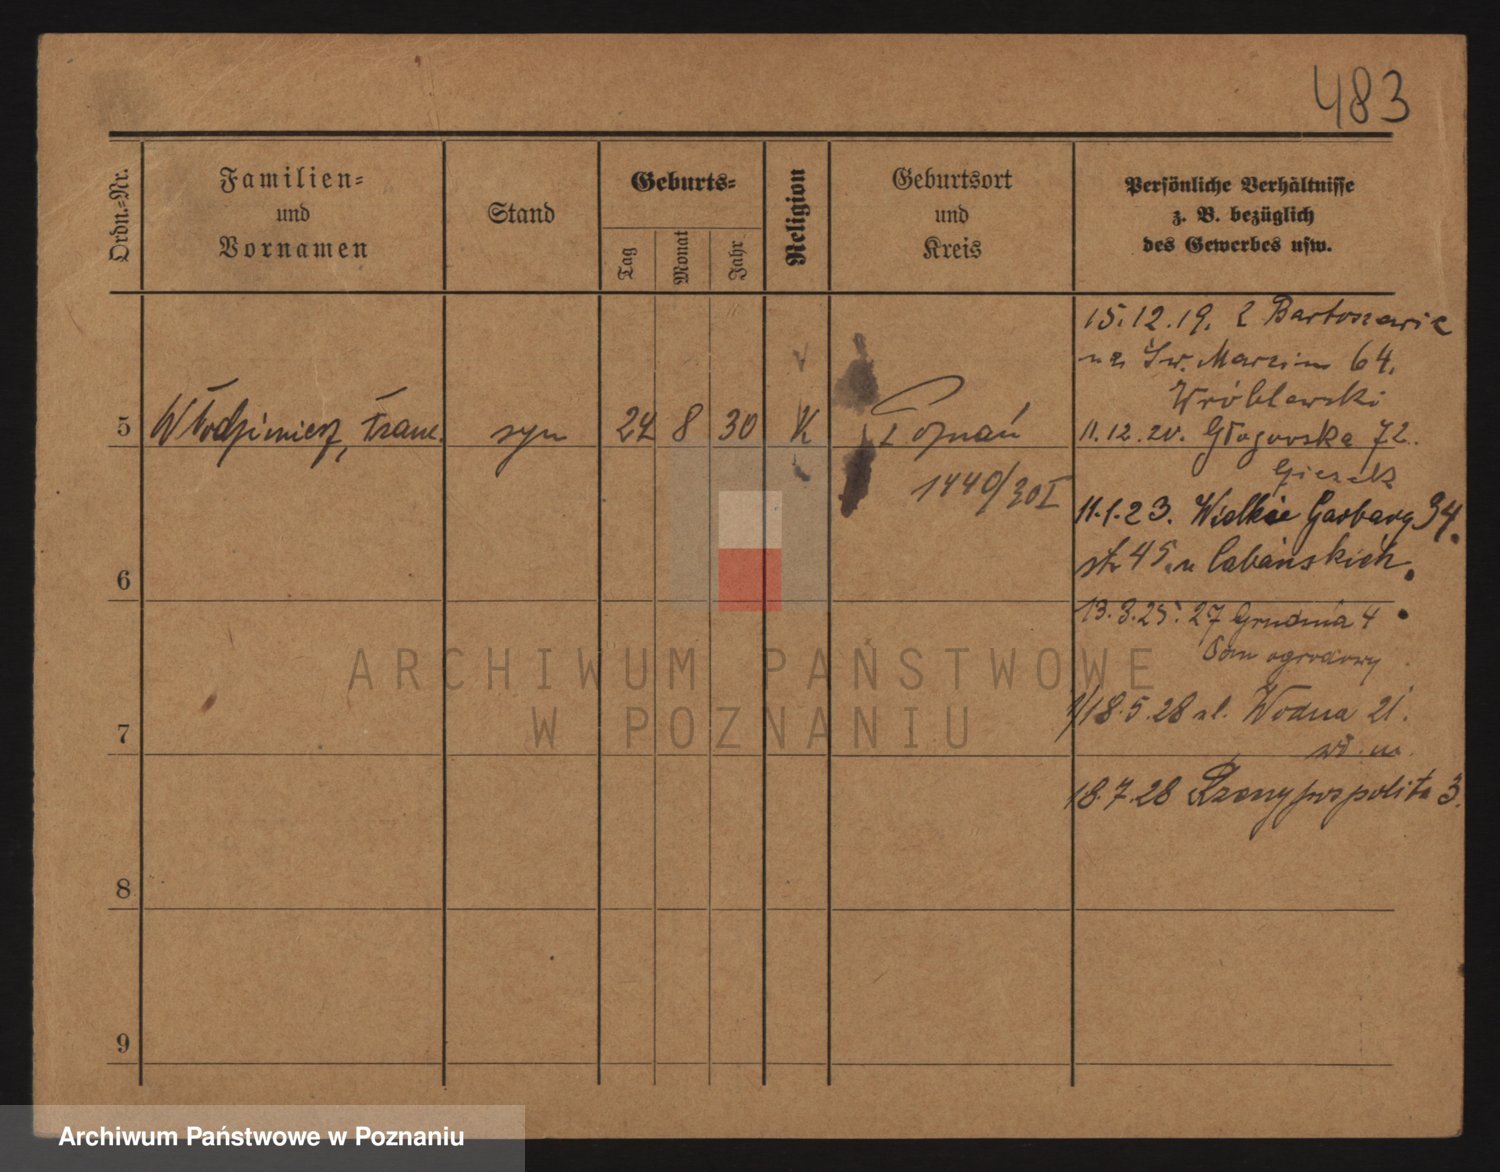 483
Ordn.-Nr.
Familien-
und
Vornamen
Stand
Geburts-
Tag
Monat
Jahr
Religion
Geburtsort
und
Kreis
Persönliche Verhältnisse
z. B. bezüglich
des Gewerbes usw.
15.12.19. Bartoszewic
na Św. Marcin 64.
Wróblewski
5 Włodzimierz, Franc. syn 24 8 30 K Poznań
11.12.20. Głogowska 72.
1440/30 I
11.1.23. Wielkie Garbary 34.
45
6
13.3.25. 27 Grudnia 4
Dom ogrodowy
ARCHIWUM PAŃSTWOWE
W POZNANIU
18.5.28 ul. Wodna 21.
7
18.7.28 Rzeczypospolita 3.
8
9
Archiwum Państwowe w Poznaniu